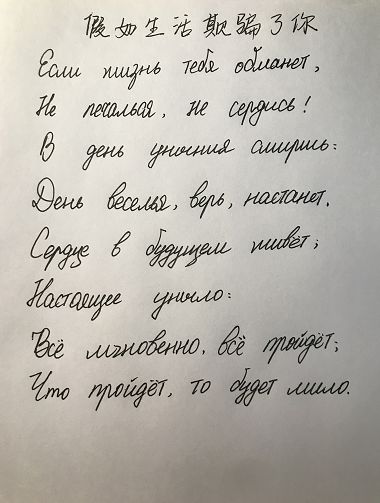 假如生活欺骗了你
Если жизнь тебя обманет,
Не печалься, не сердись!
В день уныния смирись:
День веселья, верь, настанет.
Сердце в будущем живёт;
Настоящее уныло:
Всё мгновенно, всё пройдёт;
Что пройдёт, то будет мило.